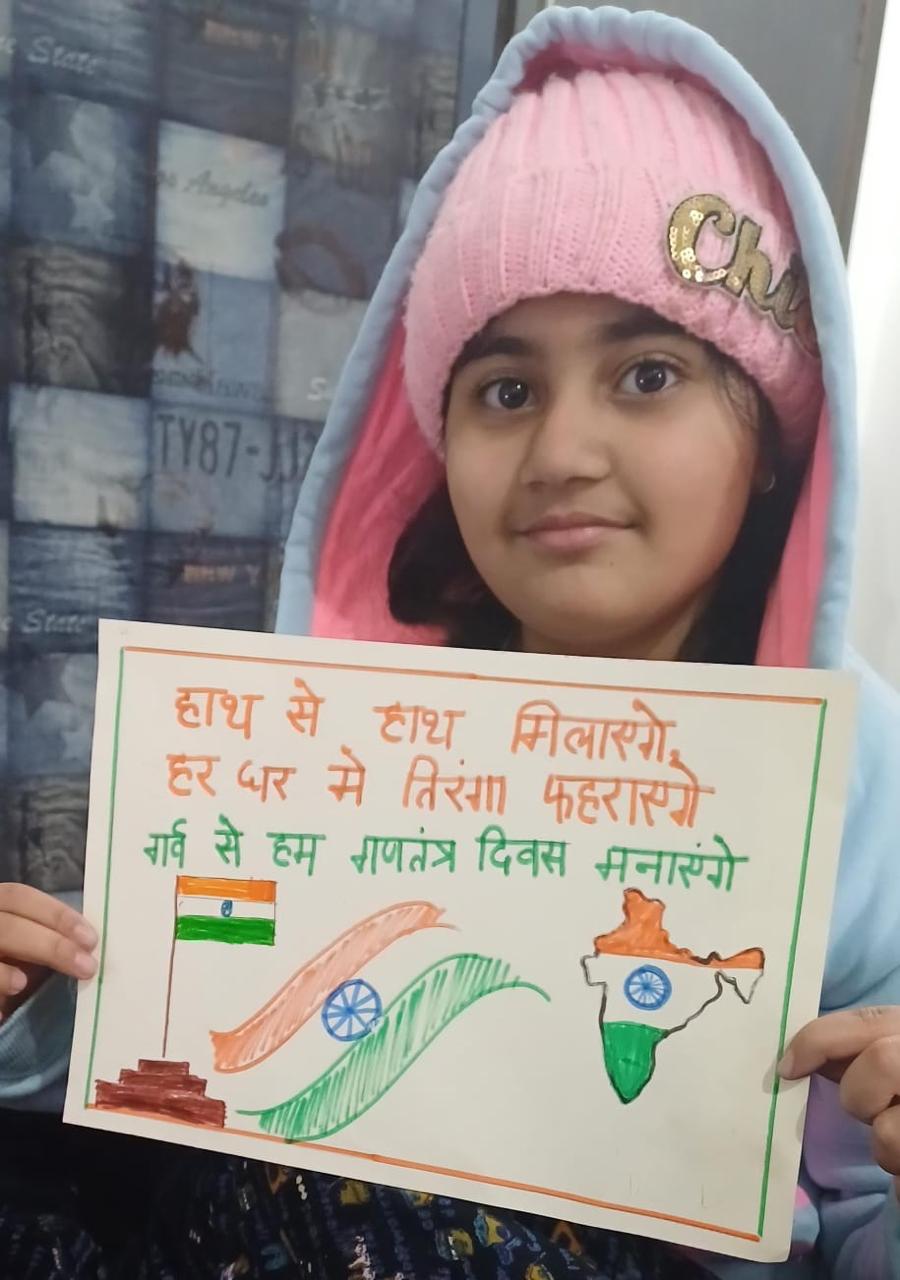 State
Los Angeles
TY87-JJ
State
Chi
हाथ से हाथ मिलाएगे,
हर घर मे तिरंगा फहराएगे
गर्व से हम गणतंत्र दिवस मनाएंगे